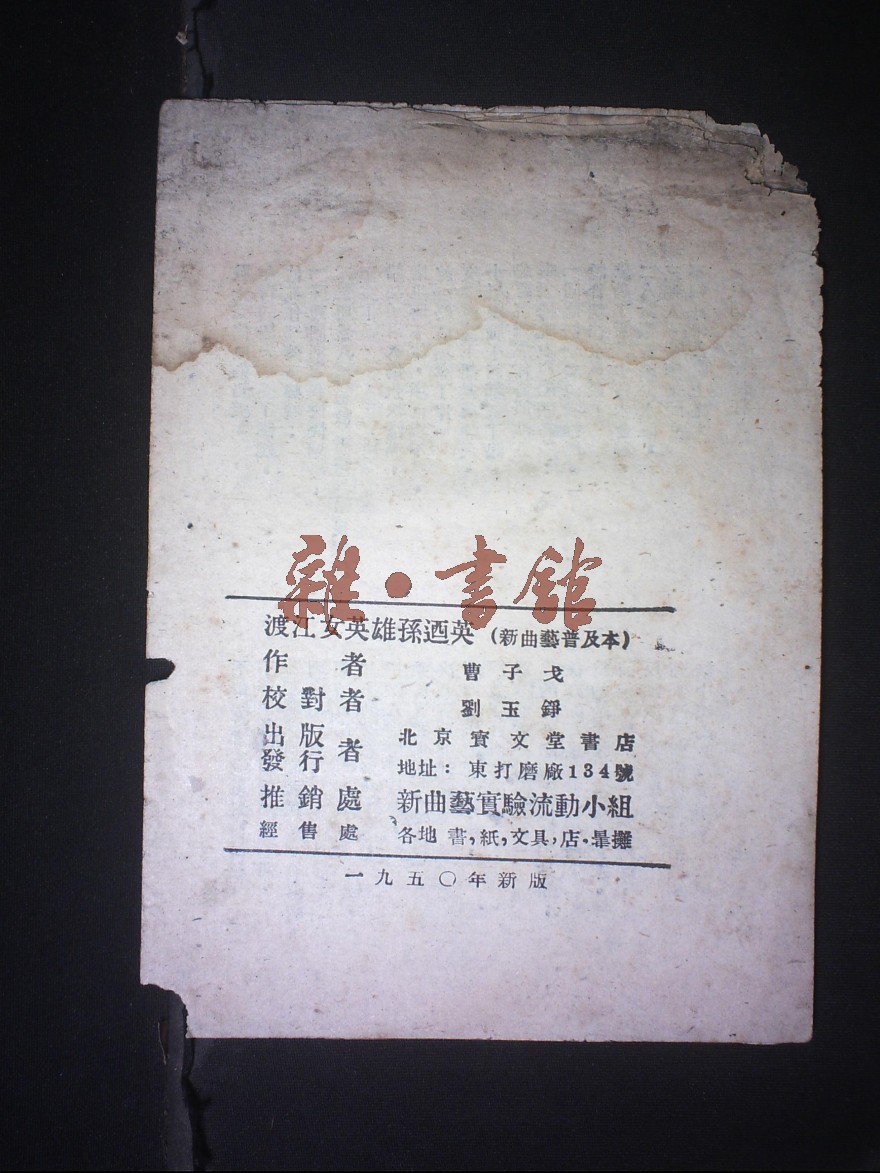 雜·書館
渡江女英雄孫迺英 (新曲藝普及本)
作者 曹子戈
校對者 劉玉錚
出版發行者 北京寳文堂書店
地址：東打磨廠134號
推銷處 新曲藝實驗流動小組
經售處 各地書，紙，文具，店·攤
一九五〇年新版